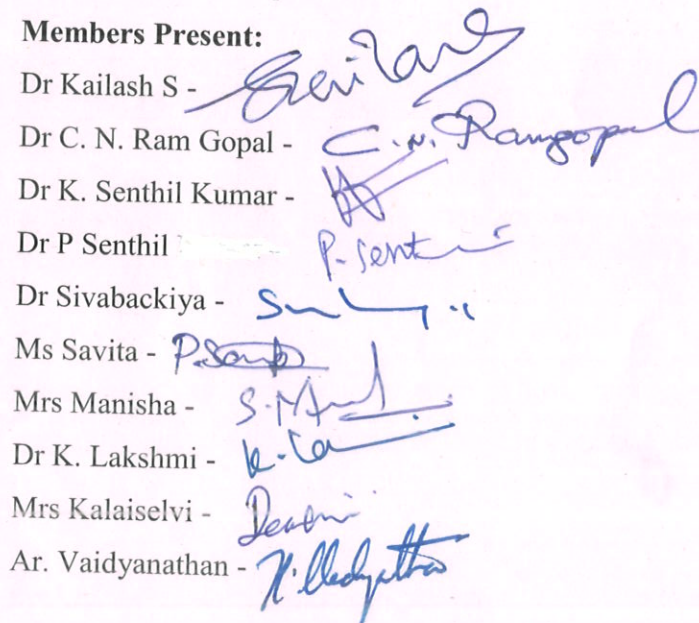 Members Present:
Dr Kailash S -
Dr C. N. Ram Gopal - C. N. Ramgopal
Dr K. Senthil Kumar -
Dr P Senthil P. Senthil
Dr Sivabackiya -
Ms Savita -
Mrs Manisha -
Dr K. Lakshmi -
Mrs Kalaiselvi -
Ar. Vaidyanathan -